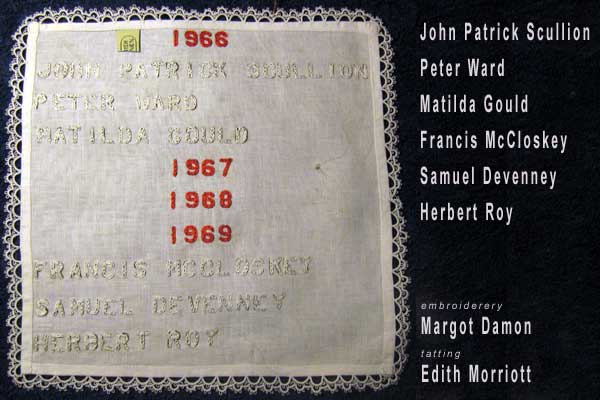 1966
JOHN PATRICK SCULLION
PETER WARD
MATILDA GOULD
1967
1968
1969
FRANCIS MCCLOSKEY
SAMUEL DEVENNEY
HERBERT ROY
John Patrick Scullion
Peter Ward
Matilda Gould
Francis McCloskey
Samuel Devenney
Herbert Roy
embroiderery
Margot Damon
tatting
Edith Morriott